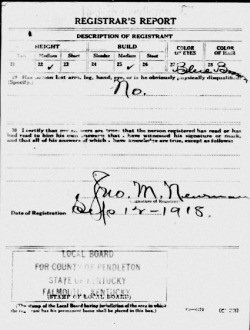 REGISTRAR'S REPORT
DESCRIPTION OF REGISTRANT
HEIGHT BUILD COLOR OF EYES COLOR OF HAIR
Tall Medium Short Slender Medium Stout
21 22 ✓ 23 24 25 ✓ 26 27 Blue 28
29 Has person lost arm, leg, hand, eye, or is he obviously physically disqualified?
(Specify.)
No.
30 I certify that my answers are true; that the person registered has read or has
had read to him his own answers; that I have witnessed his signature or mark,
and that all of his answers of which I have knowledge are true, except as follows:
Jno. M. Newman
(Signature of Registrar)
Date of Registration Sep 12-1918.
LOCAL BOARD
FOR COUNTY OF PENDLETON
STATE OF KENTUCKY
FALMOUTH, KENTUCKY
(STAMP OF LOCAL BOARD)
(The stamp of the Local Board having jurisdiction of the area in which
the registrant has his permanent home shall be placed in this box.)